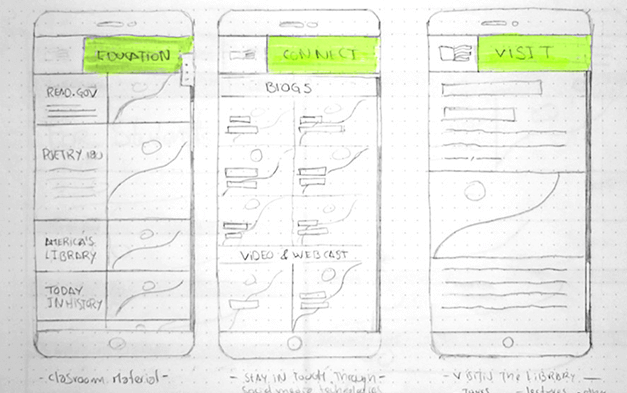 EDUCATION
READ.GOV
POETRY 180
AMERICA'S
LIBRARY
TODAY
IN HISTORY
- Clasroom Material -
CONNECT
BlOGS
VIDEO & WEBCAST
- STAY IN Touch Through -
Social media technologies
VISIT
- VISITIN The LIBRARY
Tours - lectures - other